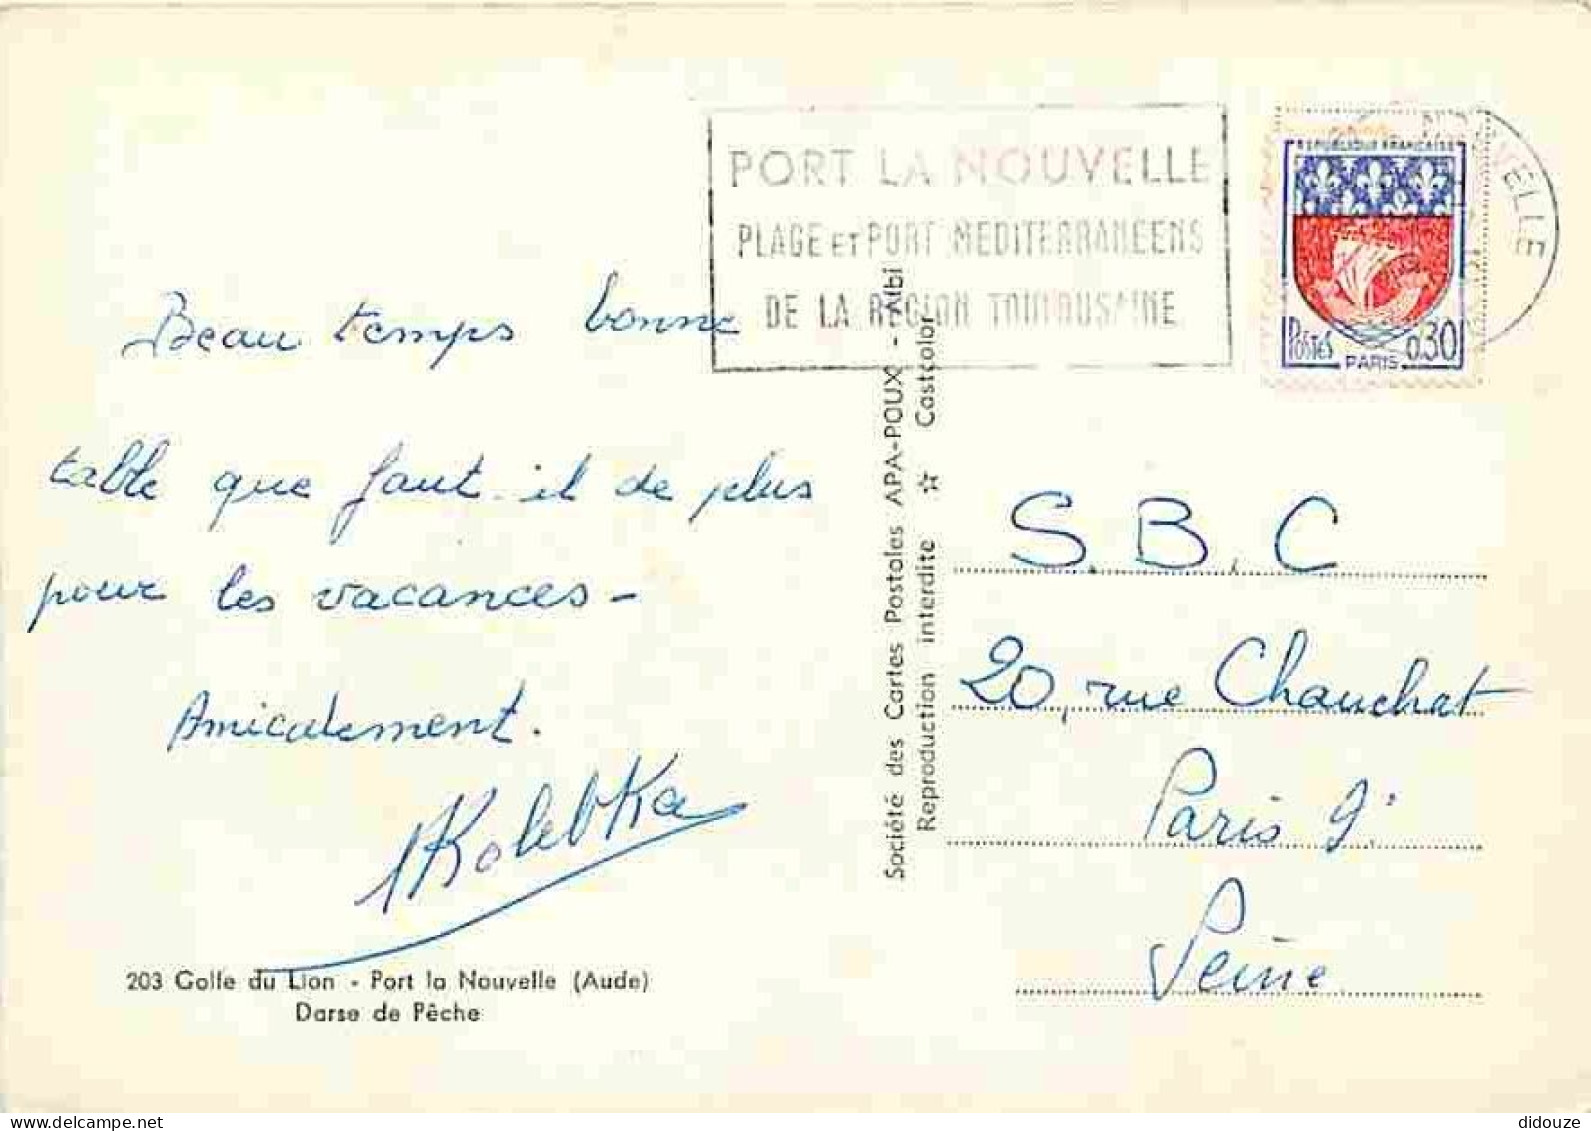 PORT LA NOUVELLE
PLAGE ET PORT MEDITERRANEENS
DE LA REGION TOULOUSAINE
NOUVELLE
REPUBLIQUE FRANCAISE
POSTES 0,30
PARIS
Beau temps bonne
table que faut-il de plus
pour les vacances -
Amicalement.
Kolebka
203 Golfe du Lion - Port la Nouvelle (Aude)
Darse de Pêche
Société des Cartes Postales APA-POUX - Albi
Reproduction interdite ☆ Castcolor
S.B.C
20, rue Chauchat
Paris 9.
Seine
delcampe.net
didouze